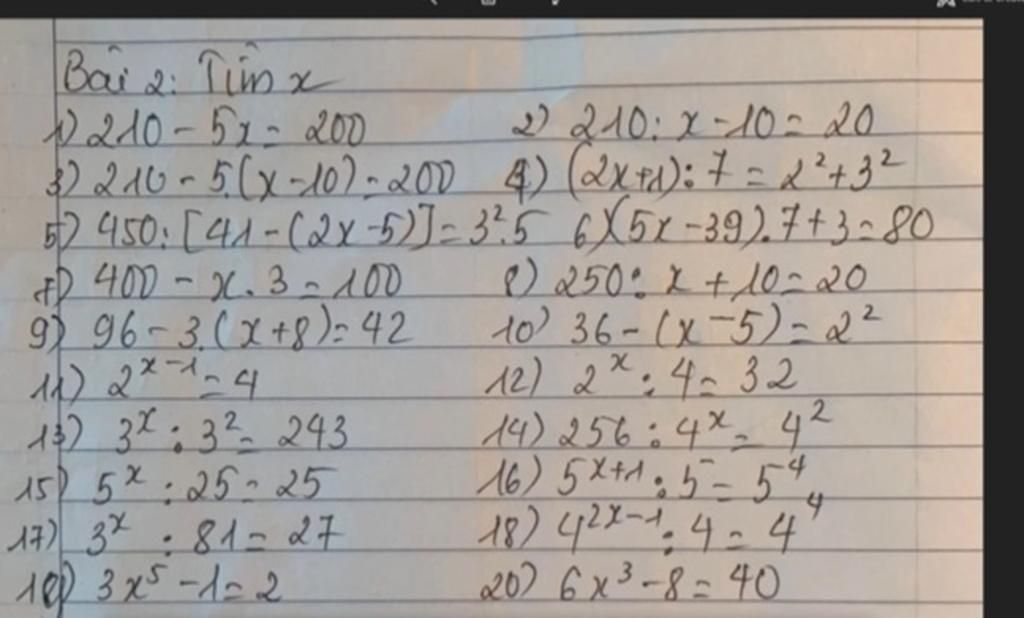 Bài 2: Tìm x
1) 210 - 5x = 200 2) 210 : x - 10 = 20
3) 210 - 5.(x - 10) = 200 4) (2x+1) : 7 = 2² + 3²
5) 450 : [41 - (2x - 5)] = 3².5 6) (5x - 39).7 + 3 = 80
7) 400 - x . 3 = 100 8) 250 : x + 10 = 20
9) 96 - 3.(x + 8) = 42 10) 36 - (x - 5) = 2²
11) 2ˣ⁻¹ = 4 12) 2ˣ : 4 = 32
13) 3ˣ : 3² = 243 14) 256 : 4ˣ = 4²
15) 5ˣ : 25 = 25 16) 5ˣ⁺¹ : 5 = 5⁴
17) 3ˣ : 81 = 27 18) 4²ˣ⁻¹ : 4 = 4⁴
19) 3x⁵ - 1 = 2 20) 6x³ - 8 = 40